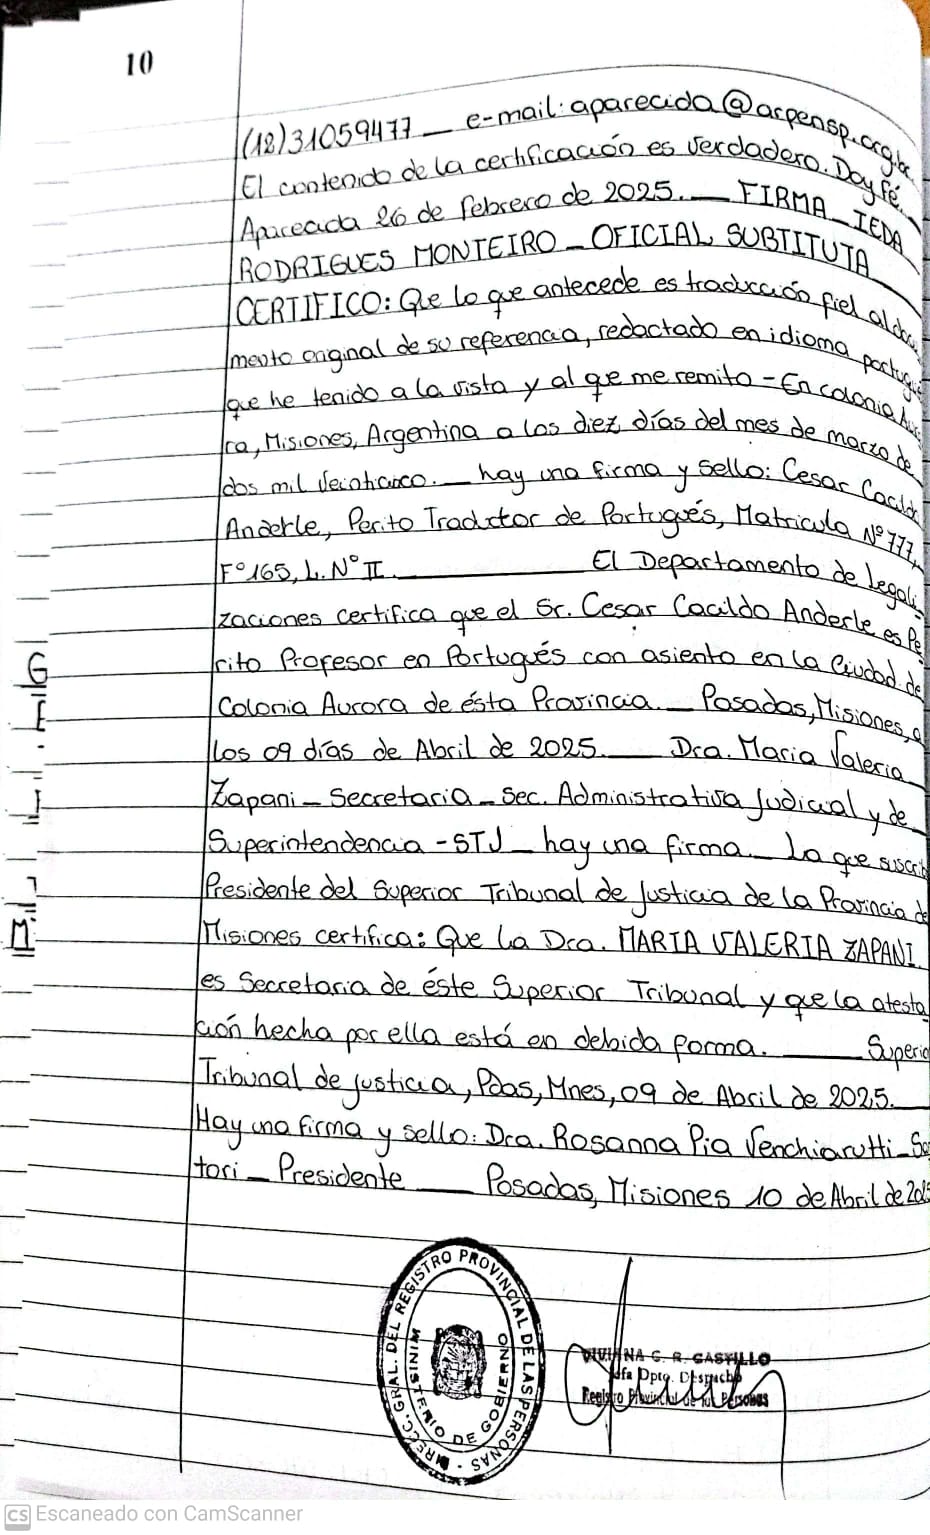 10
(12)31059477 _ e-mail: aparecida@arpensp.org.br.
El contenido de la certificación es verdadero. Doy fé.
Apareada 26 de febrero de 2025. _ FIRMA _ IEDA
RODRIGUES MONTEIRO _ OFICIAL SUBTITUTA
CERTIFICO: Que lo que antecede es traducción fiel al docu
mento original de su referencia, redactado en idioma portugué
que he tenido a la vista y al que me remito - En colonia Auro
ra, Misiones, Argentina a los diez días del mes de marzo de
dos mil veinticinco. _ hay una firma y sello: Cesar Cacildo
Anderle, Perito Traductor de Portugués, Matricula N° 777,
F° 165, L. N° II. _ El Departamento de Legali
zaciones certifica que el Sr. Cesar Cacildo Anderle es Pe
rito Profesor en Portugués con asiento en la Ciudad de
Colonia Aurora de ésta Provincia. _ Posadas, Misiones, a
los 09 días de Abril de 2025. _ Dra. Maria Valeria
Zapani _ Secretaria _ Sec. Administrativa Judicial y de
Superintendencia - STJ _ hay una firma _ La que suscrib
Presidente del Superior Tribunal de Justicia de la Provincia de
Misiones certifica: Que la Dra. MARIA VALERIA ZAPANI
es Secretaria de éste Superior Tribunal y que la atesta
ción hecha por ella está en debida forma. _ Superio
Tribunal de justicia, Pdas, Mnes, 09 de Abril de 2025. _
Hay una firma y sello: Dra. Rosanna Pia Venchiarutti _ Sa
tori _ Presidente _ Posadas, Misiones 10 de Abril de 2025
DIRECC. GRAL. DEL REGISTRO PROVINCIAL DE LAS PERSONAS
MINISTERIO DE GOBIERNO
VIVIANA G. R. CASTILLO
Jefa Dpto. Despacho
Registro Provincial de las Personas
CS Escaneado con CamScanner